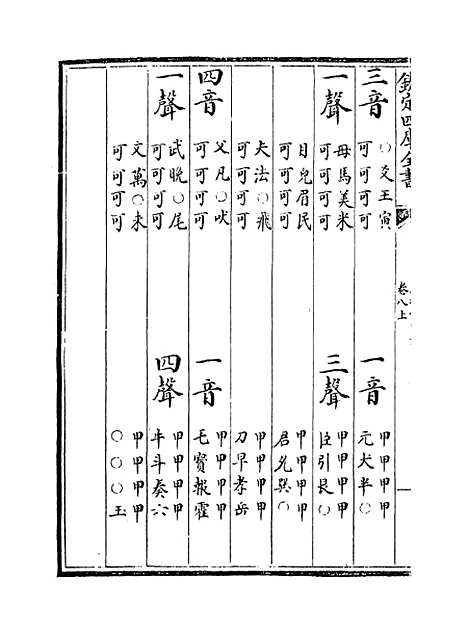 欽定四庫全書
卷八上
三音 ○爻王寅
可可可可
一音 甲甲甲甲
元犬半○
一聲 母馬美米
可可可可
三聲 甲甲甲甲
臣引艮○
目皃眉民
可可可可
甲甲甲甲
君允巽○
夫法○飛
可可可可
甲甲甲甲
刀早孝岳
四音 父凡○吠
可可可可
一音 甲甲甲甲
毛寳報霍
一聲 武晚○尾
可可可可
四聲 甲甲甲甲
牛斗奏六
文萬○未
可可可可
甲甲甲甲
○○○玉